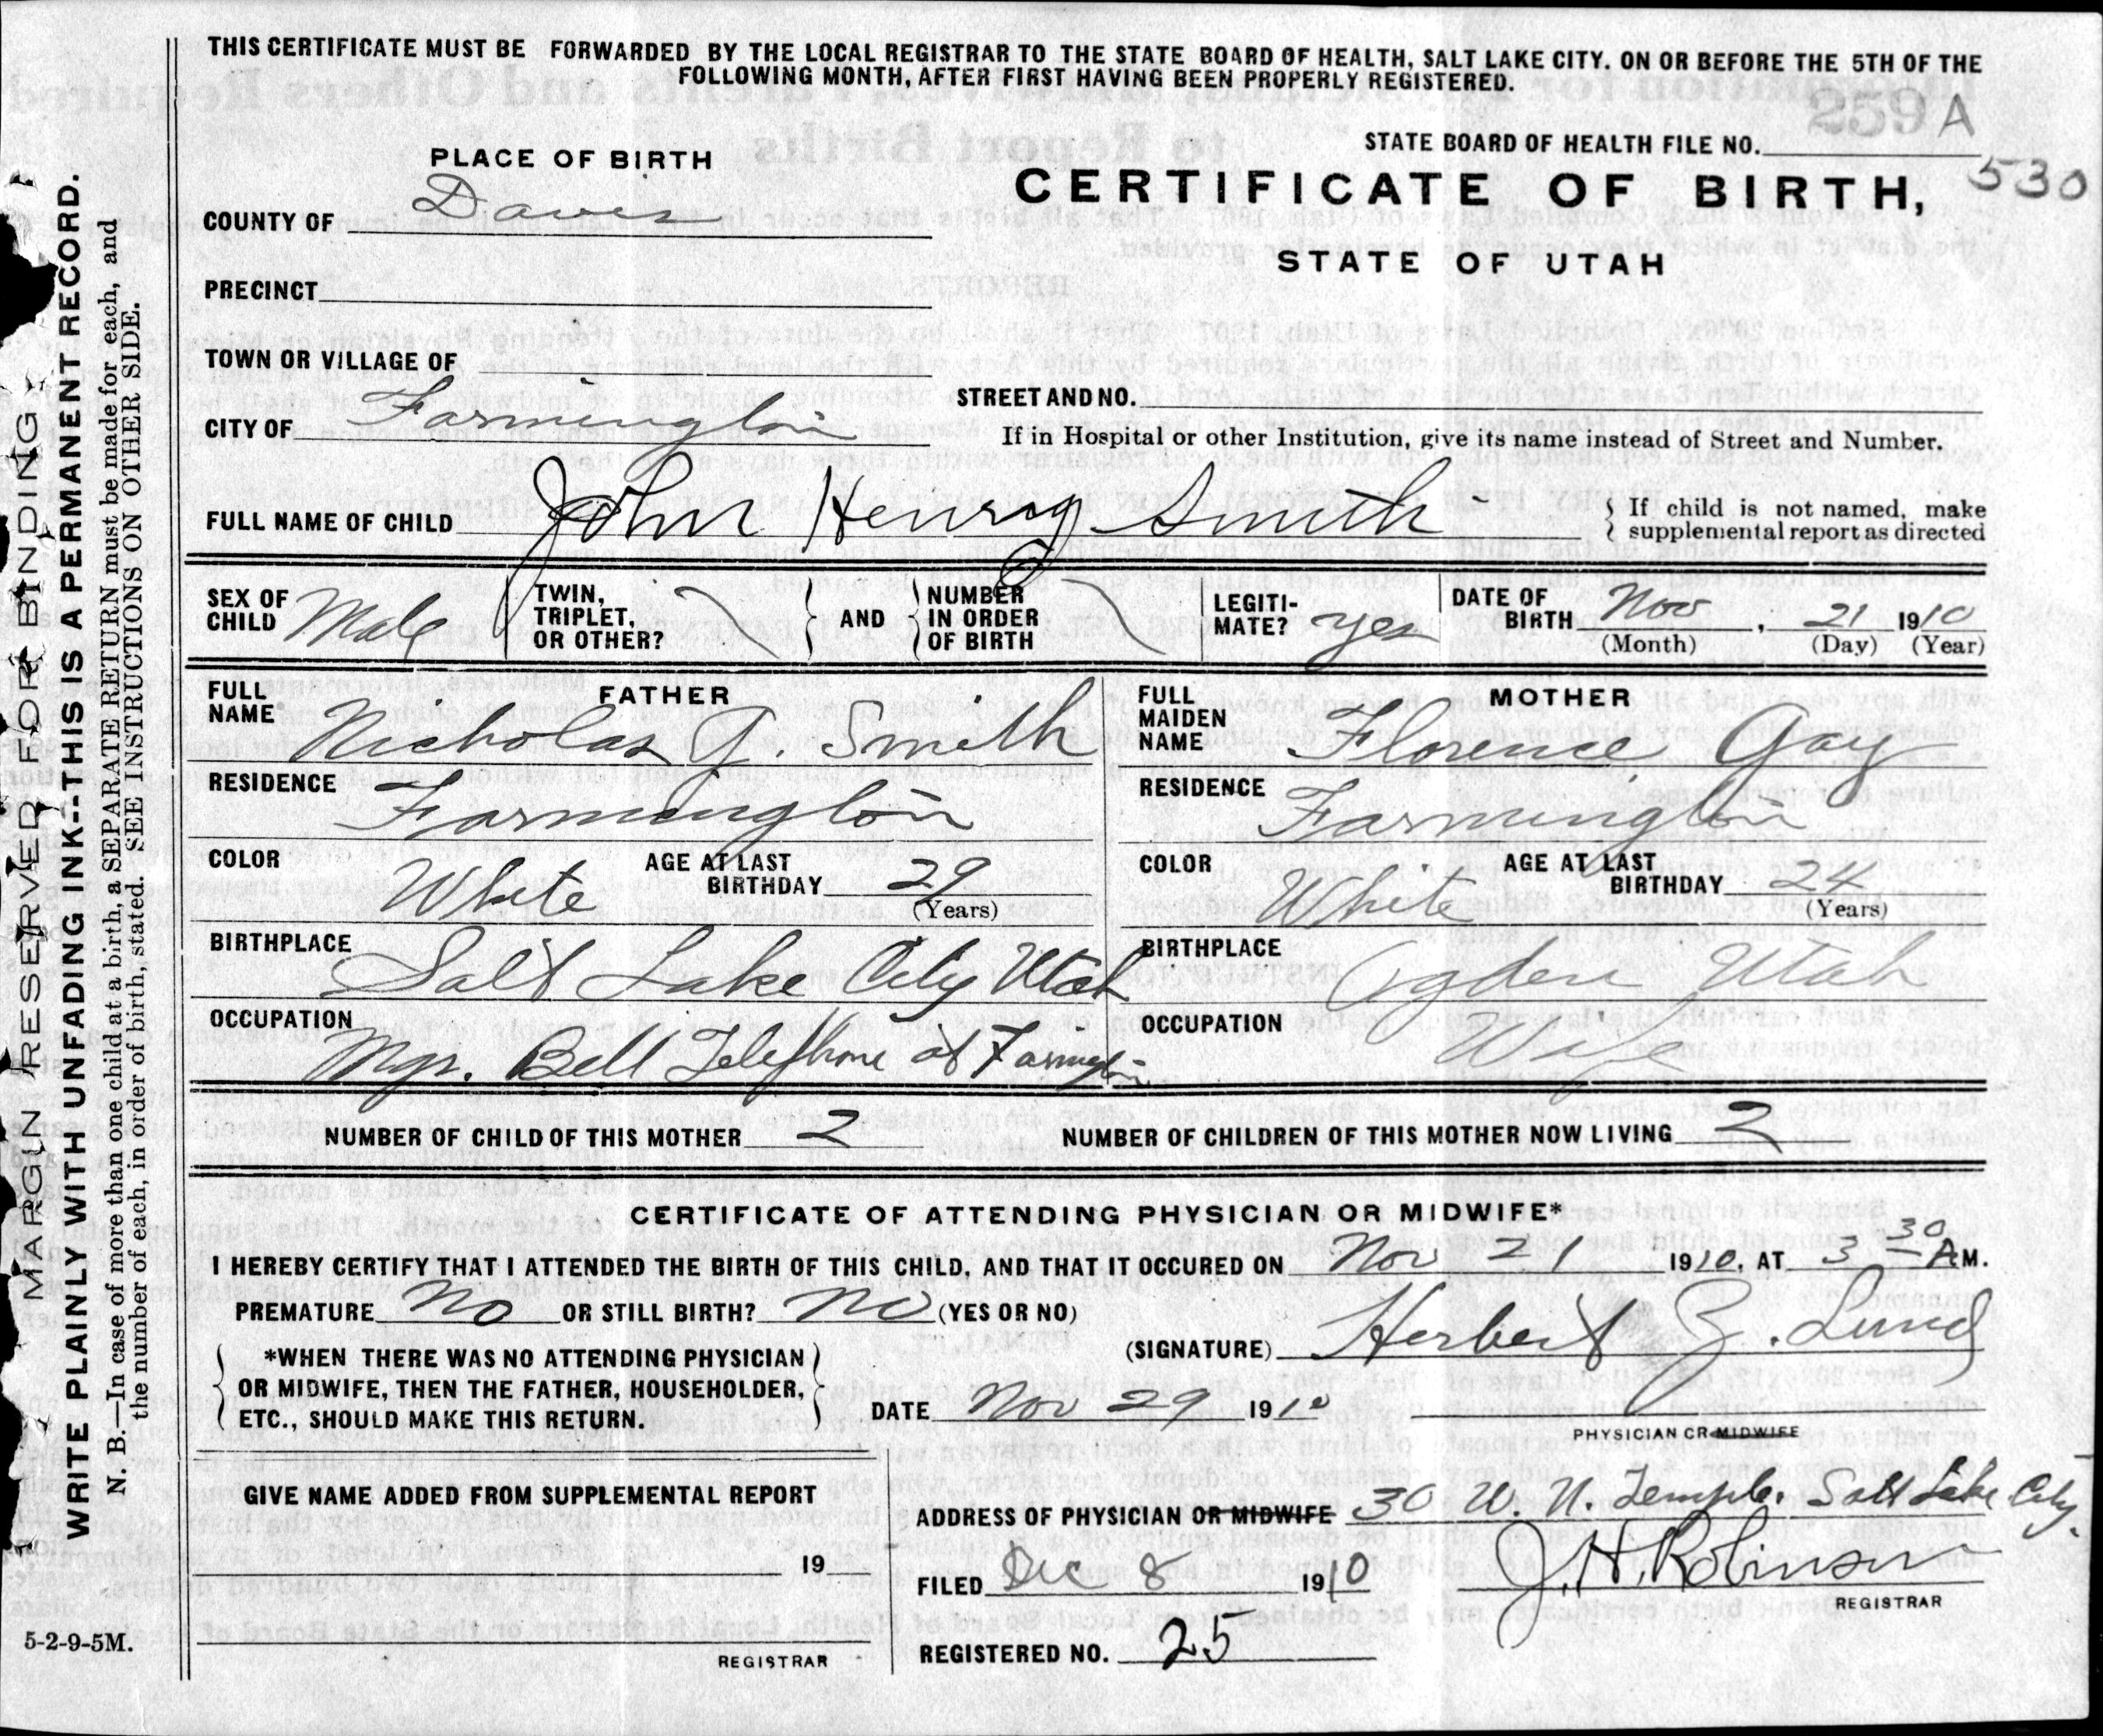 THIS CERTIFICATE MUST BE FORWARDED BY THE LOCAL REGISTRAR TO THE STATE BOARD OF HEALTH, SALT LAKE CITY, ON OR BEFORE THE 5TH OF THE
FOLLOWING MONTH, AFTER FIRST HAVING BEEN PROPERLY REGISTERED.
259 A
STATE BOARD OF HEALTH FILE NO.
530
PLACE OF BIRTH
CERTIFICATE OF BIRTH,
STATE OF UTAH
COUNTY OF Davis
PRECINCT
TOWN OR VILLAGE OF
CITY OF Farmington
STREET AND NO.
If in Hospital or other Institution, give its name instead of Street and Number.
FULL NAME OF CHILD John Henry Smith
If child is not named, make
supplemental report as directed
SEX OF CHILD Male
TWIN, TRIPLET, OR OTHER?
AND
NUMBER IN ORDER OF BIRTH
LEGITI-MATE? yes
DATE OF BIRTH Nov, 21 1910
(Month) (Day) (Year)
FATHER
FULL NAME Nicholas G. Smith
RESIDENCE Farmington
COLOR White AGE AT LAST BIRTHDAY 29
(Years)
BIRTHPLACE Salt Lake City Utah
OCCUPATION Mgr. Bell Telephone at Farmington
MOTHER
FULL MAIDEN NAME Florence Gay
RESIDENCE Farmington
COLOR White AGE AT LAST BIRTHDAY 24
(Years)
BIRTHPLACE Ogden Utah
OCCUPATION Wife
NUMBER OF CHILD OF THIS MOTHER 2 NUMBER OF CHILDREN OF THIS MOTHER NOW LIVING 2
CERTIFICATE OF ATTENDING PHYSICIAN OR MIDWIFE*
I HEREBY CERTIFY THAT I ATTENDED THE BIRTH OF THIS CHILD, AND THAT IT OCCURED ON Nov 21 1910, AT 3 30 A M.
PREMATURE No OR STILL BIRTH? no (YES OR NO)
*WHEN THERE WAS NO ATTENDING PHYSICIAN
OR MIDWIFE, THEN THE FATHER, HOUSEHOLDER,
ETC., SHOULD MAKE THIS RETURN.
(SIGNATURE) Herbert Z. Lund
DATE Nov 29 1910
PHYSICIAN OR MIDWIFE
GIVE NAME ADDED FROM SUPPLEMENTAL REPORT
19
REGISTRAR
ADDRESS OF PHYSICIAN OR MIDWIFE 30 W. N. Temple. Salt Lake City.
FILED Dec 8 1910
J. H. Robinson
REGISTRAR
REGISTERED NO. 25
MARGIN RESERVED FOR BINDING
WRITE PLAINLY WITH UNFADING INK--THIS IS A PERMANENT RECORD.
N. B.—In case of more than one child at a birth, a SEPARATE RETURN must be made for each, and
the number of each, in order of birth, stated. SEE INSTRUCTIONS ON OTHER SIDE.
5-2-9-5M.